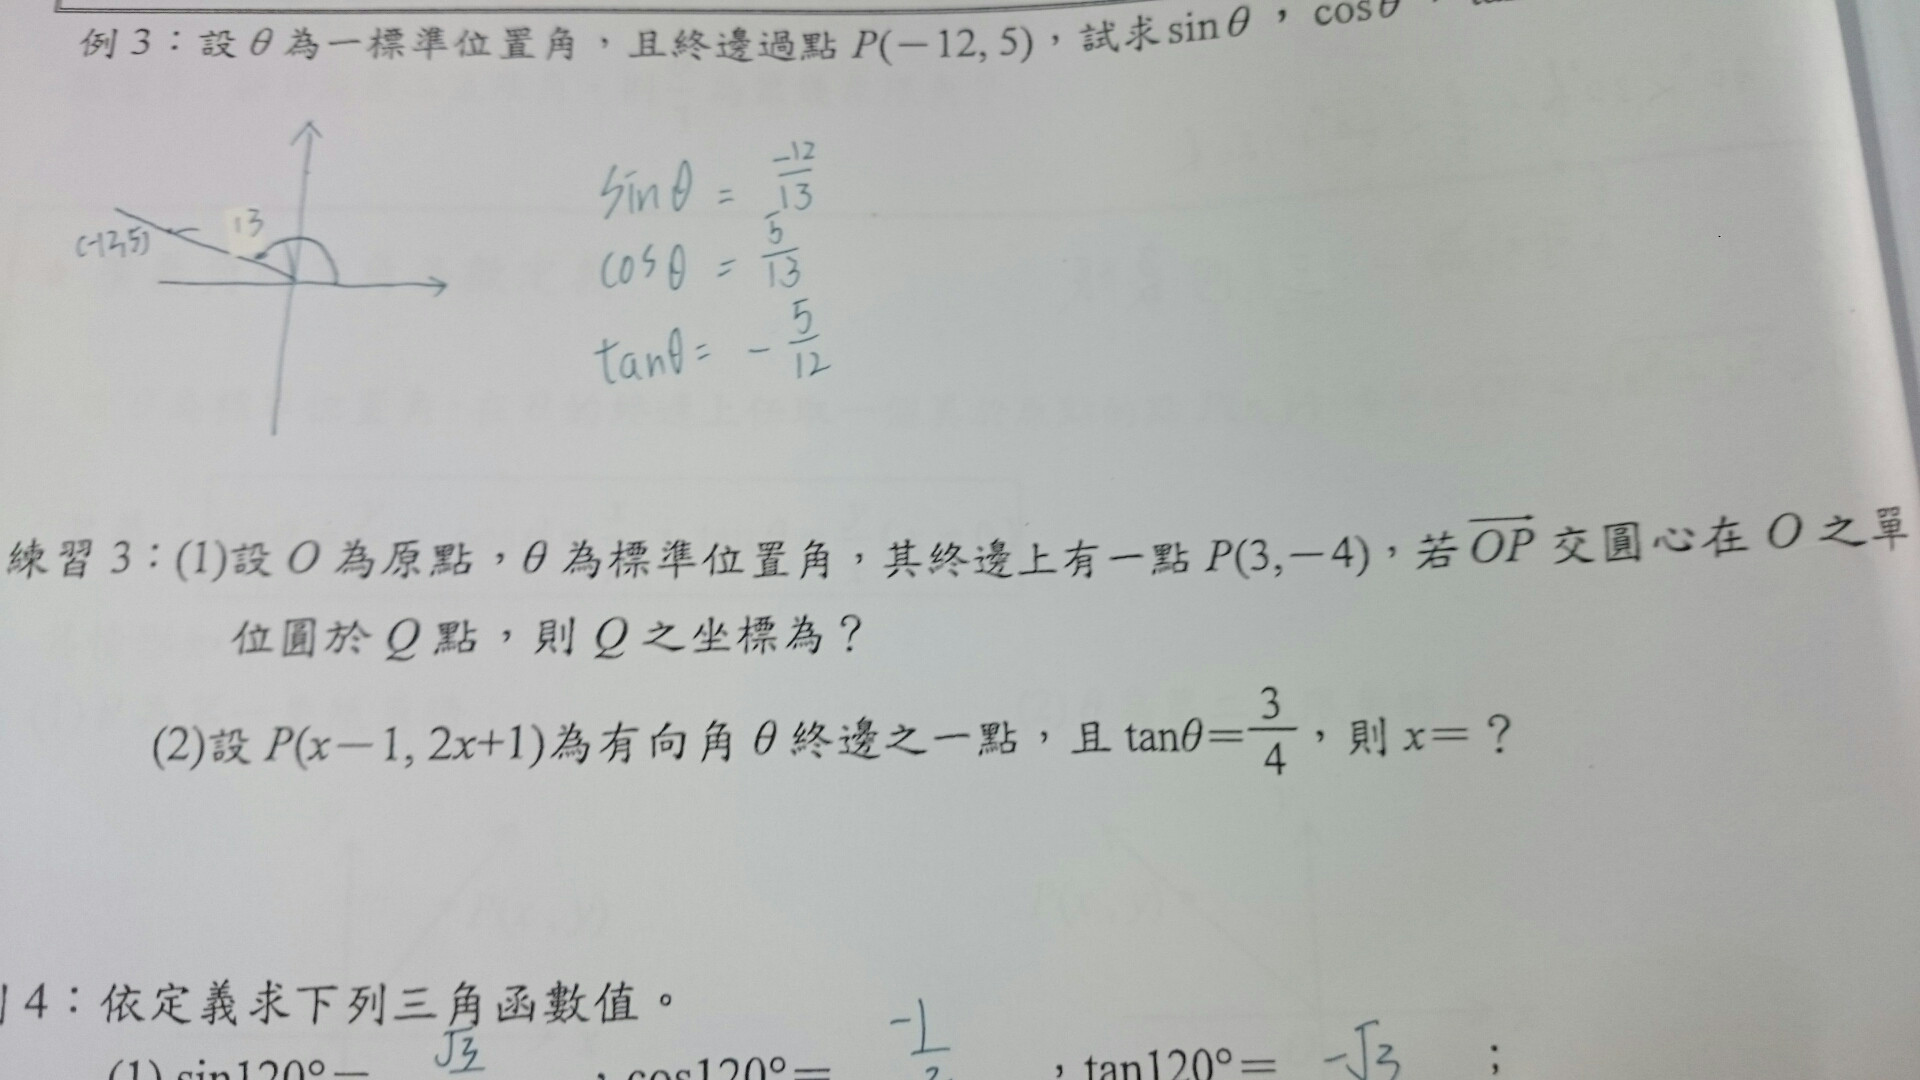 例 3：設 θ 為一標準位置角，且終邊過點 P(－12, 5)，試求 sin θ ， cos θ
(-12,5)
13
sinθ = -12/13
cosθ = 5/13
tanθ = - 5/12
練習 3：(1)設 O 為原點，θ 為標準位置角，其終邊上有一點 P(3,－4)，若 OP 交圓心在 O 之單
位圓於 Q 點，則 Q 之坐標為？
(2)設 P(x－1, 2x+1)為有向角 θ 終邊之一點，且 tanθ=3/4，則 x=？
4：依定義求下列三角函數值。
(1) sin120°= √3 ，cos120°= -1/2 ，tan120°= -√3 ；